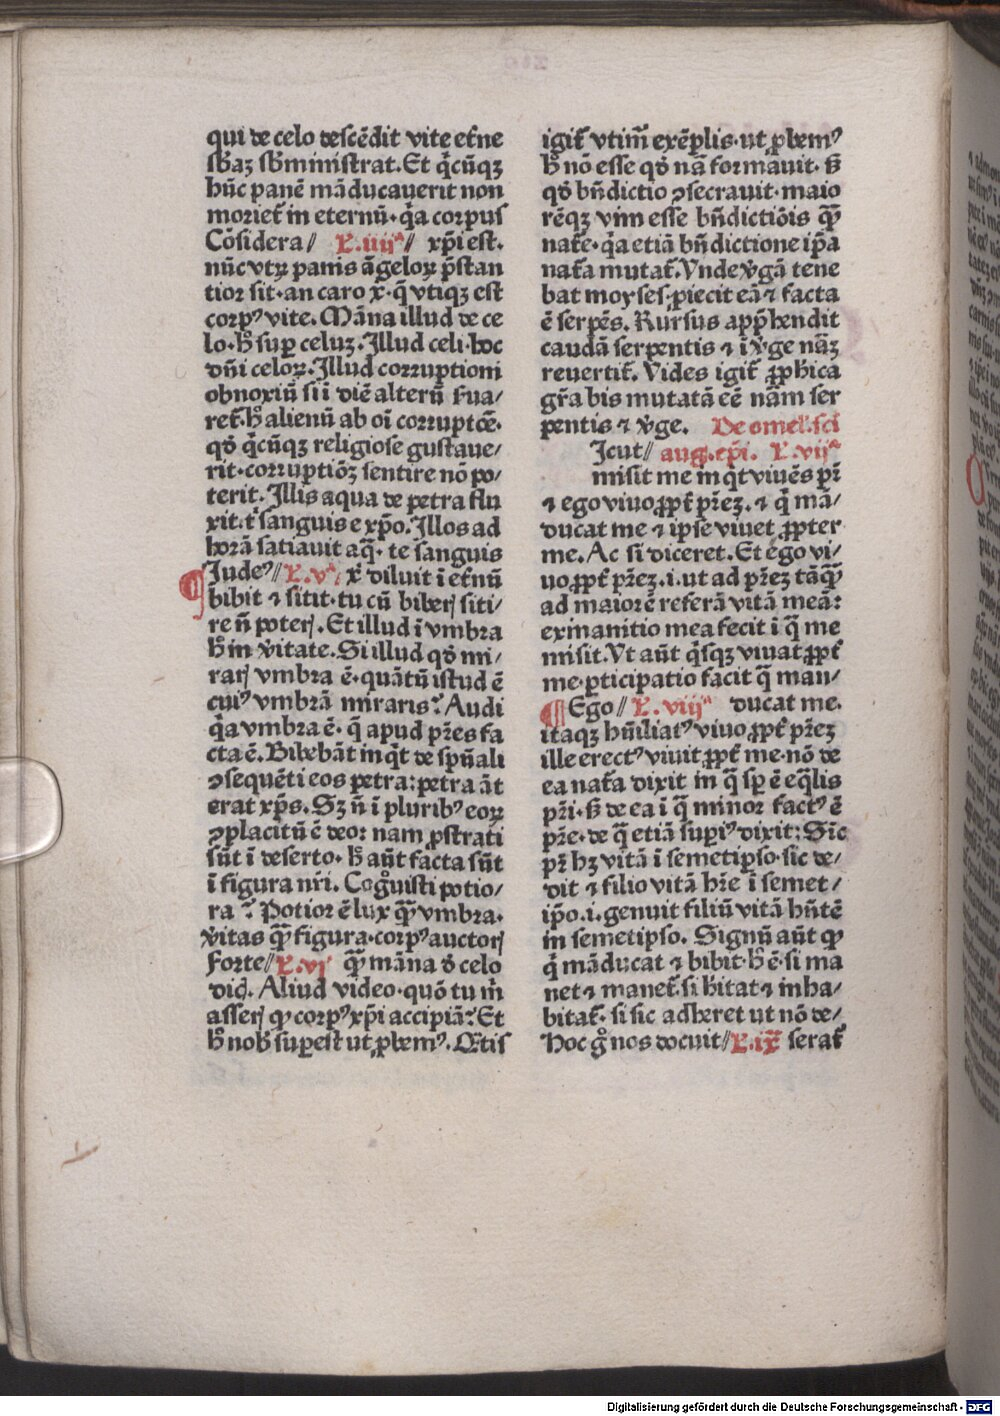 qui de celo descēdit vite et̄ne
sb̄aꝫ sb̄ministrat. Et q̇cūqꝫ
hūc panē māducauerit non
moriet᷑ in eternū· q̇a corpus
Cōsidera// L.iiijᵃ// xp̄i est.
nūc vtꝝ panis āgeloꝝ p̄stan
tior sit· an caro x̄· q̄ vtiqꝫ est
corpꝰ vite. Māna illud de ce
lo· hͦ suꝑ celuꝫ. Illud celi· hoc
dn̄i celoꝝ. Illud corruptioni
obnoxiū si ī diē alterū ẜua/
ret᷑· hͦ alienū ab oī corruptōe.
qd̓ q̇cūqꝫ religiose gustaue/
rit· corruptiōꝫ sentire nō po/
terit. Illis aqua de petra flu
xit· t̄ sanguis e xp̄o. Illos ad
horā satiauit aq̄· te sanguis
Iudeꝰ// L.vᵃ/ x̄ diluit ī et̄nū
bibit ⁊ sitit· tu cū biberꝭ siti/
re n̄ poterꝭ. Et illud ī vmbra
hͦ in v̓itate. Si illud qd̓ mi/
rarꝭ vmbra ē· quātū istud ē
cuiꝰ vmbrā miraris? Audi
q̇a vmbra ē· q̄ apud pr̄es fa
cta ē. Bibebāt inq̇t de sp̄uali
ꝯsequēti eos petra: petra āt
erat xp̄s. Sꝫ n̄ ī pluribꝰ eoꝝ
ꝯplacitū ē deo: nam ꝓstrati
sūt ī deserto· hͦ aūt facta sūt
ī figura nr̄i. Cogͦuisti potio/
ra? Potior ē lux qꝫ̄ vmbra·
v̓itas qꝫ̄ figura· corpꝰ auctorꝭ
Forte// L.vj qꝫ̄ māna d̓ celo
dicꝭ. Aliud video· quō tu m̄
asserꝭ ꝙ corpꝰ xp̄i accipiā? Et
hͦ nob̓ suꝑest ut ꝓbemꝰ. Q̄tis
igit᷑ vtim̄ exēplis· ut ꝓbemꝰ
hͦ nō esse qd̓ nā formauit· ẜꝫ
qd̓ bn̄dictio ꝯsecrauit· maio
rēqꝫ vim esse bn̄dictiōis qꝫ̄
nat᷑e· q̇a etiā bn̄dictione ip̄a
nat᷑a mutat᷑. Vnde v̓gā tene
bat moyses· ꝓiecit eā ⁊ facta
ē serpēs. Rursus app̄hendit
caudā serpentis ⁊ ī v̓ge nāꝫ
reuertit᷑. Vides igit᷑ ꝓph̄ica
gr̄a bis mutatā eē nām ser
pentis ⁊ v̓ge. De omel̓. sc̄i
Icut// aug. ep̄i. L.vijᵃ
misit me inq̇t viuēs pr̄
⁊ ego viuo ꝓpt᷑ pr̄eꝫ· ⁊ q̇ mā/
ducat me ⁊ ipse viuet ꝓpter
me. Ac si diceret. Et ego vi/
uo ꝓpt᷑ pr̄eꝫ· i· ut ad pr̄eꝫ tāqꝫ̄
ad maiorē referā vitā meā:
exinanitio mea fecit ī q̄ me
misit. Vt aūt q̇sqꝫ viuat ꝓpt᷑
me· ꝑticipatio facit q̄ man/
Ego// L.viijᵃ ducat me.
itaqꝫ hūiliatꝰ viuo ꝓpt᷑ pr̄eꝫ
ille erectꝰ viuit ꝓpt᷑ me· nō de
ea nat᷑a dixit in q̄ sp̄ ē eq̄lis
pr̄i· ẜꝫ de ea ī q̄ minor factꝰ ē
pr̄e· de q̄ etiā superiꝰ dixit: Sic
pr̄ hꝫ vitā ī semetipso· sic de/
dit ⁊ filio vitā hr̄e ī semet/
ip̄o· i· genuit filiū vitā hn̄tē
in semetipso. Signū aūt ꝙ
q̇ māducat ⁊ bibit· hͦ ē· si ma
net ⁊ manet᷑· si h̄itat ⁊ inha/
bitat᷑· si sic adheret ut nō de/
Hoc gͦ nos docuit// L.ix serat᷑
Digitalisierung gefördert durch die Deutsche Forschungsgemeinschaft - DFG